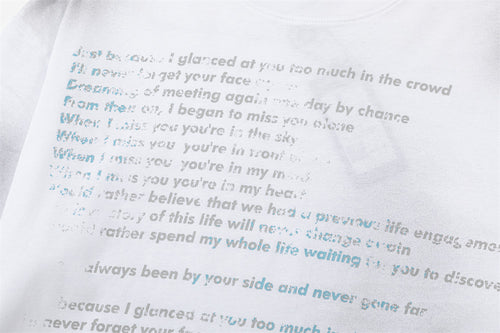 Just because I glanced at you too much in the crowd
I'll never forget your face
Dreaming of meeting again one day by chance
From then on, I began to miss you alone
When I miss you you're in the sky
When I miss you you're in front
When I miss you you're in my mind
When I miss you you're in my heart
would rather believe that we had a previous life engagemen
story of this life will never change again
would rather spend my whole life waiting for you to discove
always been by your side and never gone far
because I glanced at you too much in
never forget your fa